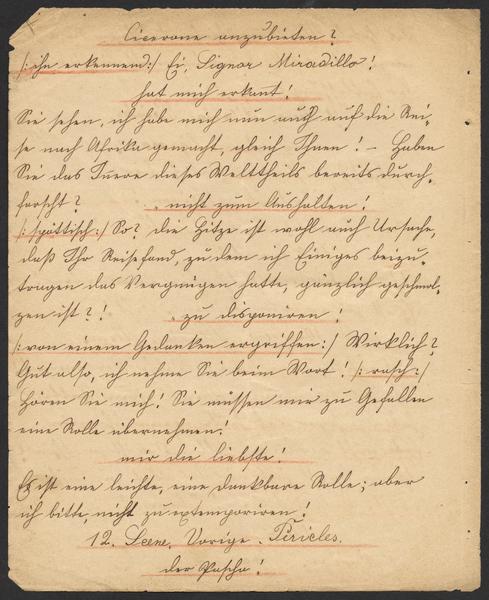 Cicerone anzubieten?
/: ihn erkennend :/ Ei, Signor Miradillo!
hat mich erkant!
Sie sehen, ich habe mich nun auch auf die Rei-
se nach Afrika gemacht, gleich Ihnen! – Haben
Sie das Innere dieses Welttheils bereits durch-
forscht? nicht zum Aushalten!
/: spöttisch :/ So? die Hitze ist wohl auch Ursache,
daß Ihr Reisefond, zu dem ich Einiges beizu-
tragen das Vergnügen hatte, gänzlich geschmol-
zen ist?! zu disponiren!
/: von einem Gedanken ergriffen :/ Wirklich?
Gut also, ich nehme Sie beim Wort! /: rasch :/
Hören Sie mich! Sie müssen mir zu Gefallen
eine Rolle übernehmen!
mir die liebste!
Es ist eine leichte, eine dankbare Rolle; aber
ich bitte, nicht zu extemporiren!
12. Scene. Vorige. Pericles.
der Pascha!